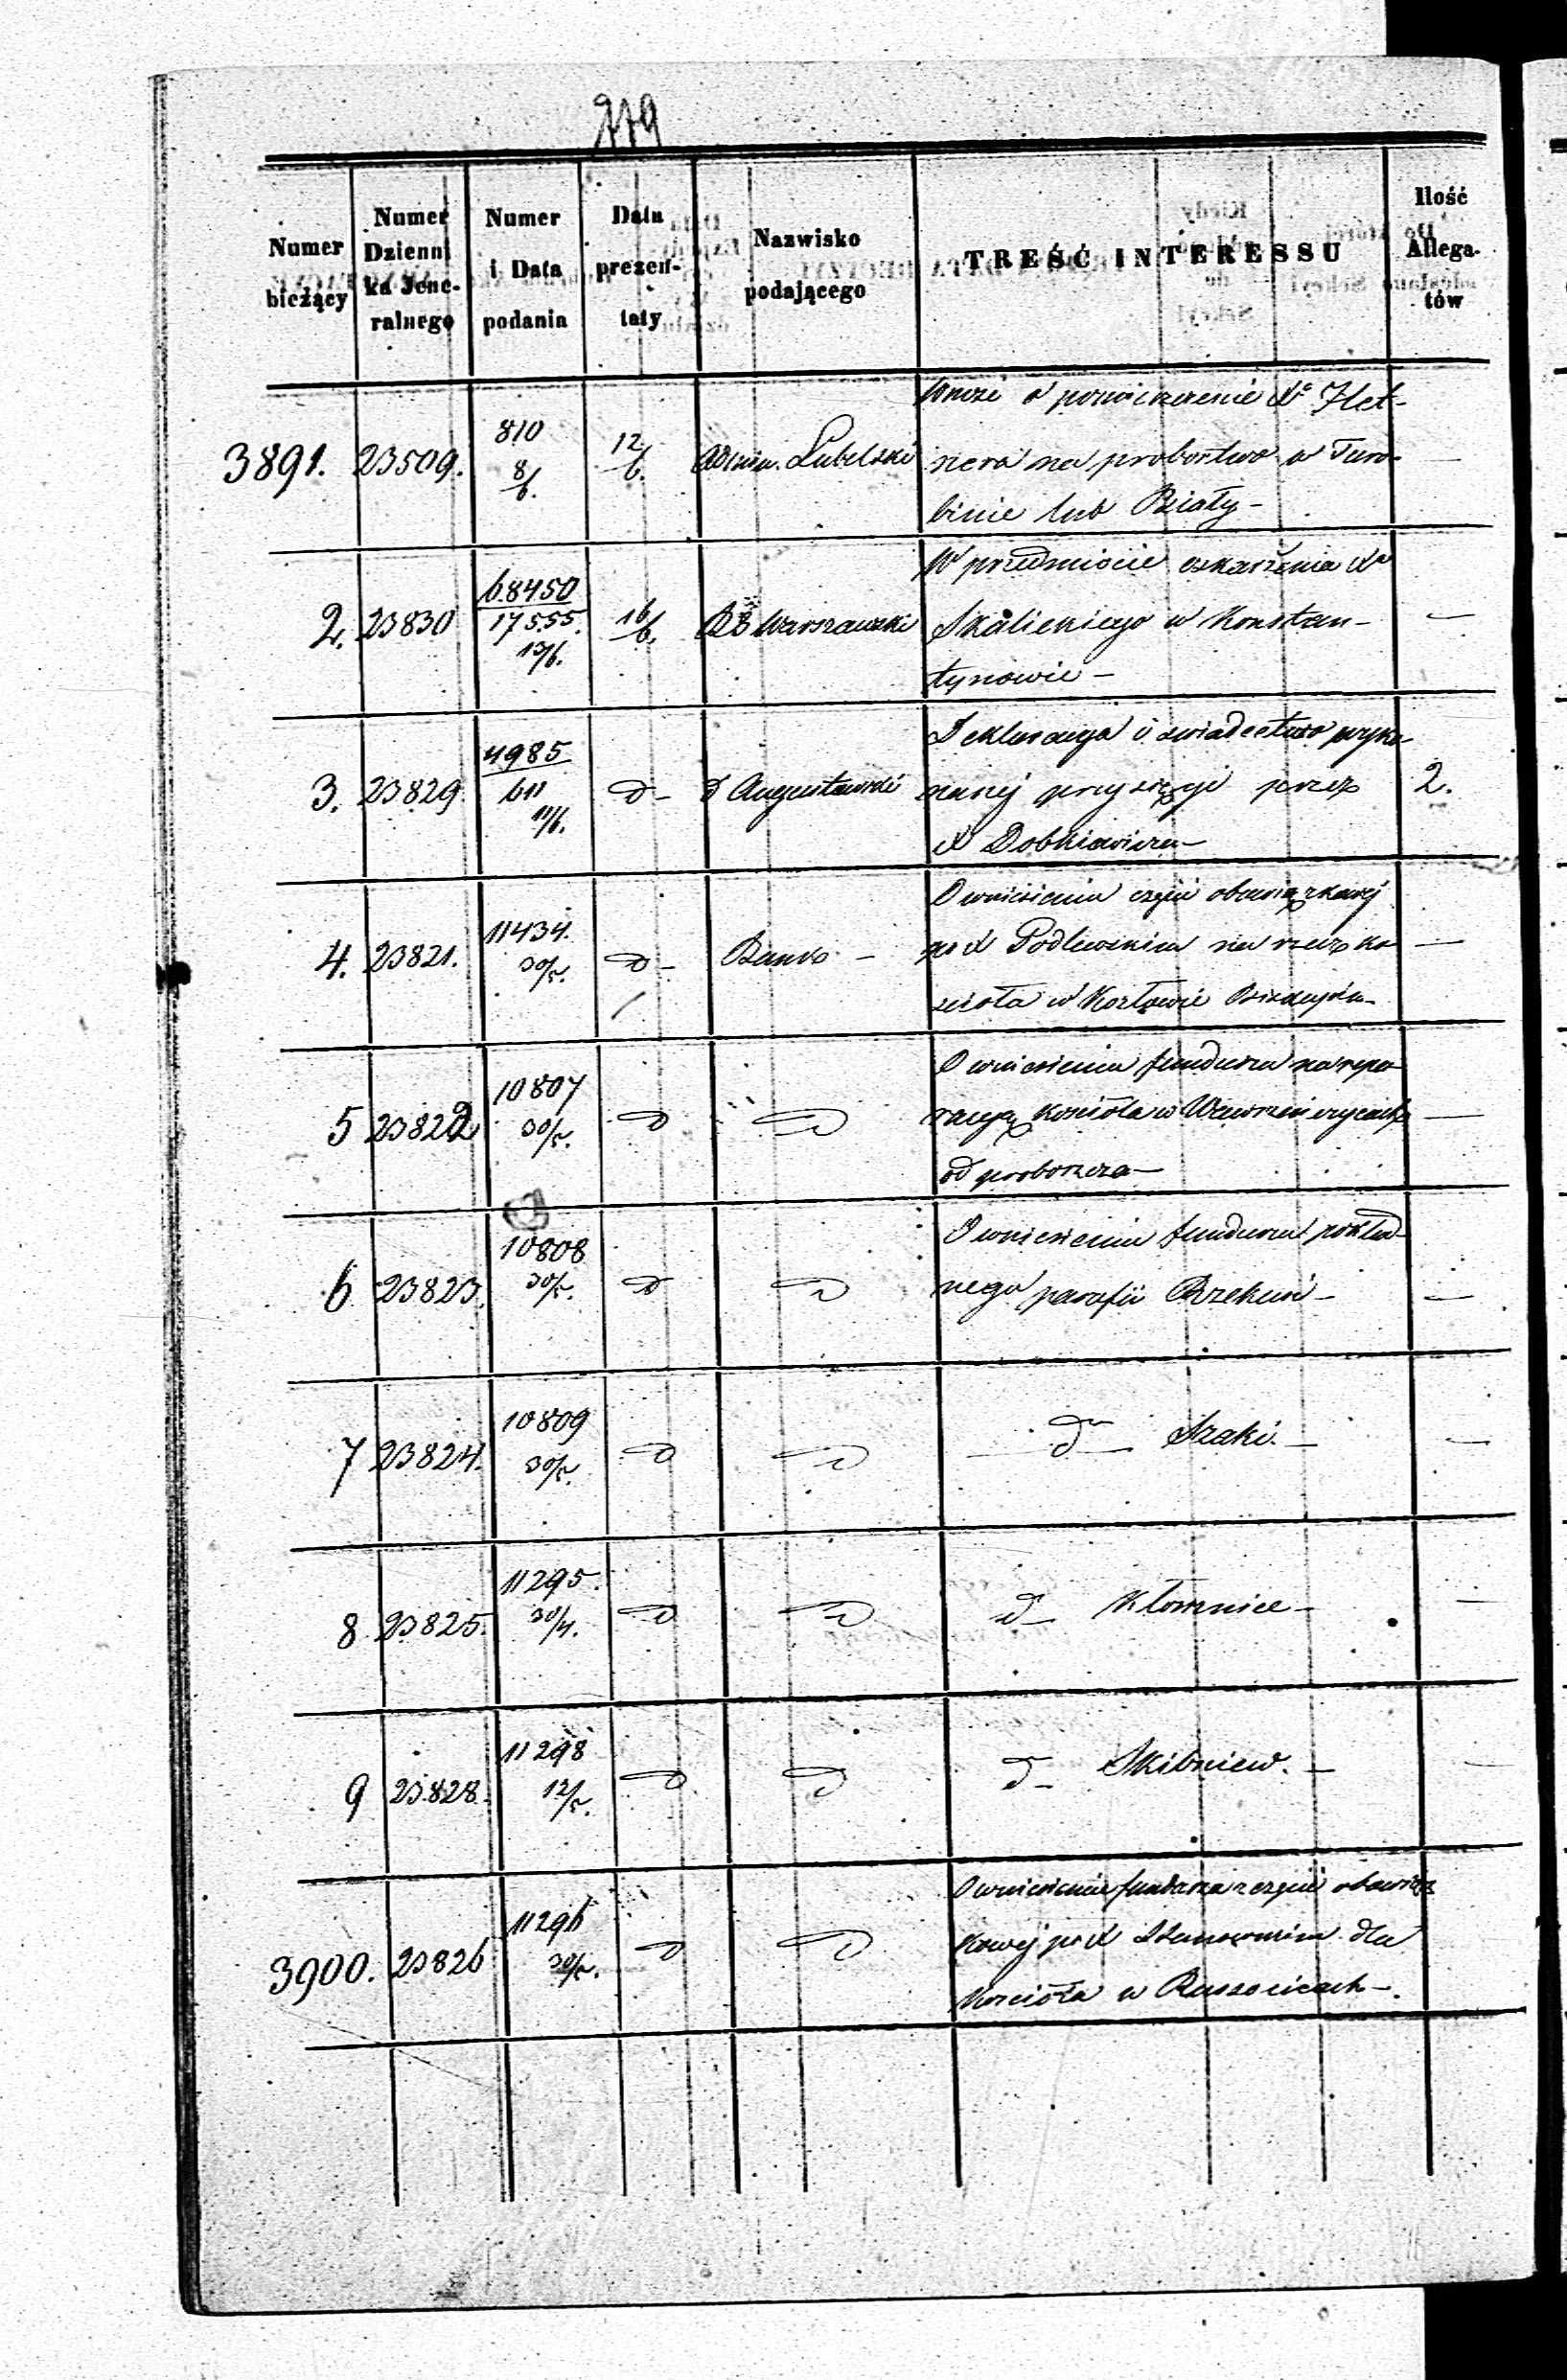 779
Numer bieżący | Numer Dzienni ka Jene- ralnego | Numer i Data podania | Data prezen- taty | Nazwisko podającego | TREŚĆ INTERESSU | Ilość Allega- tów
3891. | 23509. | 810 8/6. | 12/6. | Admin. Lubelski | Wnosi o powierzenie Xa Het-
nera na probostwo w Turo-
binie lub Biały -
2. | 23830 | 68450 17555. 13/6. | 16/6. | RG Warszawski | W przedmiocie oskarżenia Xa
Skalickiego w Konstan-
tynowie - | —
3. | 23829 | 4985 611 11/6. | d - | d Augustowski | Deklaracya i świadectwo wyko-
nanej przysięgi przez
X Dobkiewicza - | 2.
4. | 23821. | 11434. 30/5. | d - | Bank - | O wniesieniu części obowiązkowej
po X Podlewskim na rzecz ko
ścioła w Kozłowie | —
5 | 23822 | 10807 30/5. | d | d | O wniesieniu funduszu na repa
racyą kościoła w Wawrzeńczycach
od proboszcza - | —
6 | 23823. | 10808 30/5. | d | d | O wniesieniu funduszu pokład
nego parafii Rzekuń - | —
7 | 23824. | 10809 30/5. | d | d | d Szaki. - | —
8 | 23825. | 11295. 30/4. | d | d | d - Kłomnice - | —
9 | 23828. | 11298 12/5. | d | d | d - Skibniew. - | —
3900. | 23826 | 11296 30/5. | d | d | O wniesienie funduszu z części obowiąz
kowej po X dla
kościoła w Russocicach -.